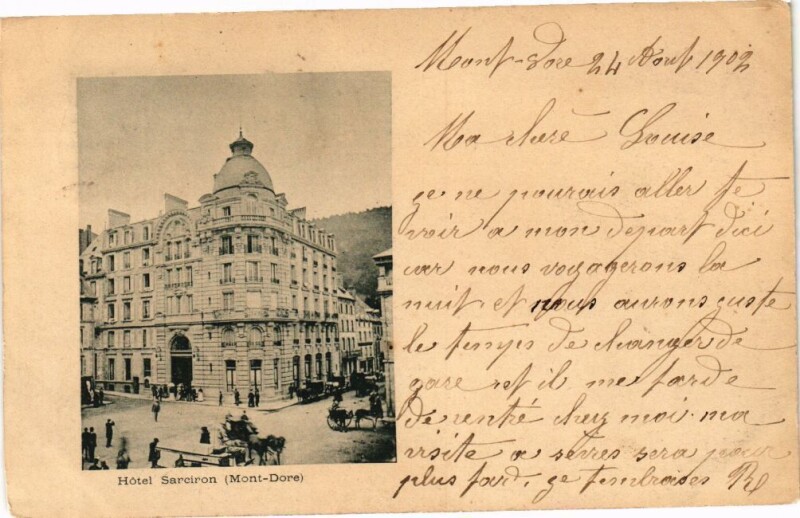 Mont-Dore 24 Aout 1902
Ma chere Louise
je ne pourais aller te
voir a mon depart dici
car nous voyagerons la
nuit et nous aurons juste
le temps de changer de
gare et il me tarde
de rentré chez moi. ma
visite a sevres sera pour
plus tard. je tembrasse
Hôtel Sarciron (Mont-Dore)